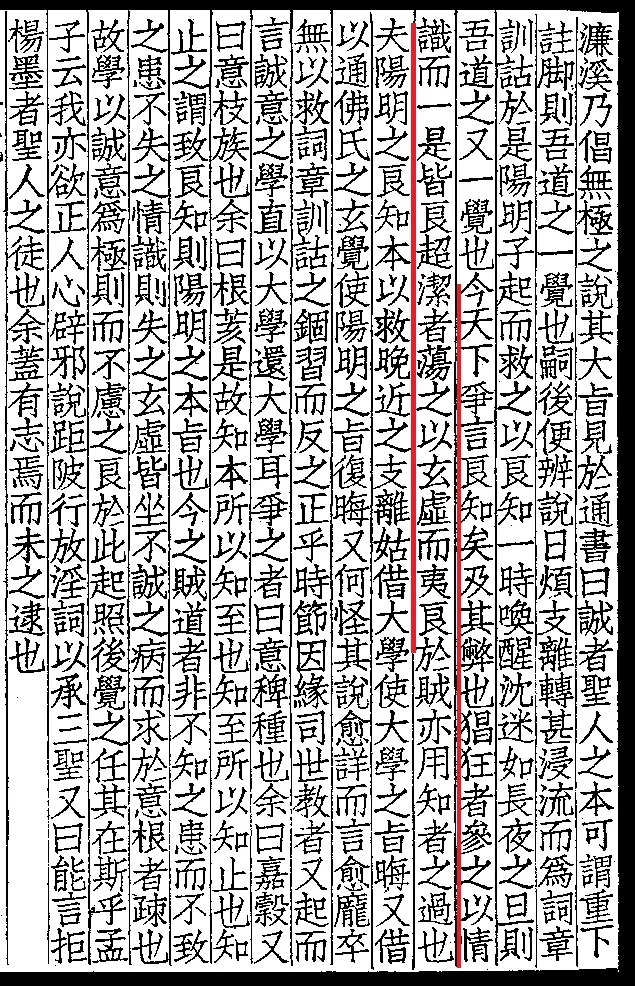 濂溪乃倡無極之說其大旨見於通書曰誠者聖人之本可謂重下
註脚則吾道之一覺也嗣後便辨說日煩支離轉甚浸流而爲詞章
訓詁於是陽明子起而救之以良知一時喚醒沈迷如長夜之旦則
吾道之又一覺也今天下爭言良知矣及其弊也猖狂者參之以情
識而一是皆良超潔者蕩之以玄虛而夷良於賊亦用知者之過也
夫陽明之良知本以救晚近之支離姑借大學使大學之旨晦又借
以通佛氏之玄覺使陽明之旨復晦又何怪其說愈詳而言愈龐卒
無以救詞章訓詁之錮習而反之正乎時節因緣司世教者又起而
言誠意之學直以大學還大學耳爭之者曰意稗種也余曰嘉穀又
曰意枝族也余曰根荄是故知本所以知至也知至所以知止也知
止之謂致良知則陽明之本旨也今之賊道者非不知之患而不致
之患不失之情識則失之玄虛皆坐不誠之病而求於意根者疎也
故學以誠意爲極則而不慮之良於此起照後覺之任其在斯乎孟
子云我亦欲正人心辟邪說距詖行放淫詞以承三聖又曰能言拒
楊墨者聖人之徒也余蓋有志焉而未之逮也